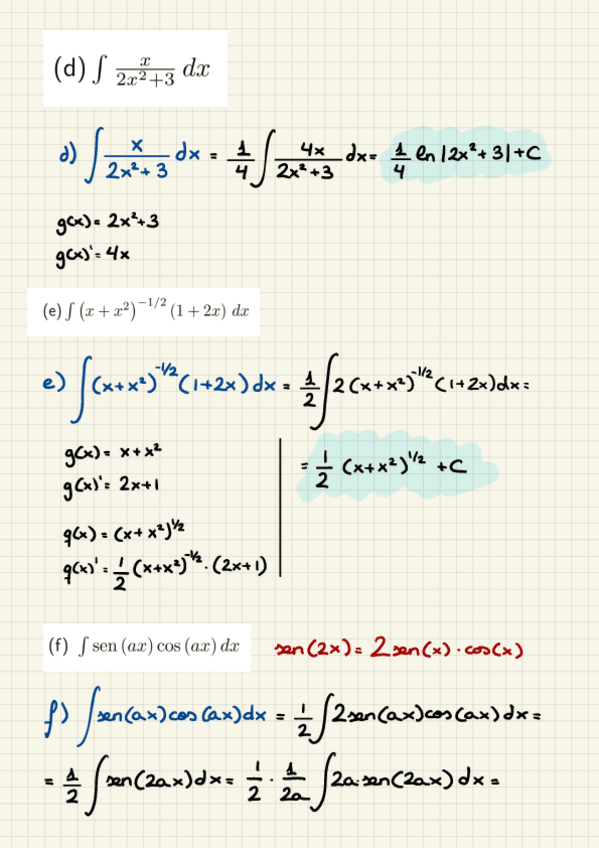 (d) ∫ x/(2x²+3) dx
d) ∫ x/(2x²+3) dx = 1/4 ∫ 4x/(2x²+3) dx = 1/4 ln |2x²+3| + C
g(x) = 2x²+3
g(x)' = 4x
(e) ∫ (x + x²)^(-1/2) (1 + 2x) dx
e) ∫ (x+x²)^(-1/2) (1+2x) dx = 1/2 ∫ 2 (x+x²)^(-1/2) (1+2x) dx =
g(x) = x + x²
= 1/2 (x+x²)^(1/2) + C
g(x)' = 2x+1
g(x) = (x + x²)^(1/2)
g(x)' = 1/2 (x+x²)^(-1/2) · (2x+1)
(f) ∫ sen (ax) cos (ax) dx
sen(2x) = 2 sen(x) · cos(x)
f) ∫ sen(ax) cos(ax) dx = 1/2 ∫ 2sen(ax) cos(ax) dx =
= 1/2 ∫ sen(2ax) dx = 1/2 · 1/2a ∫ 2a·sen(2ax) dx =